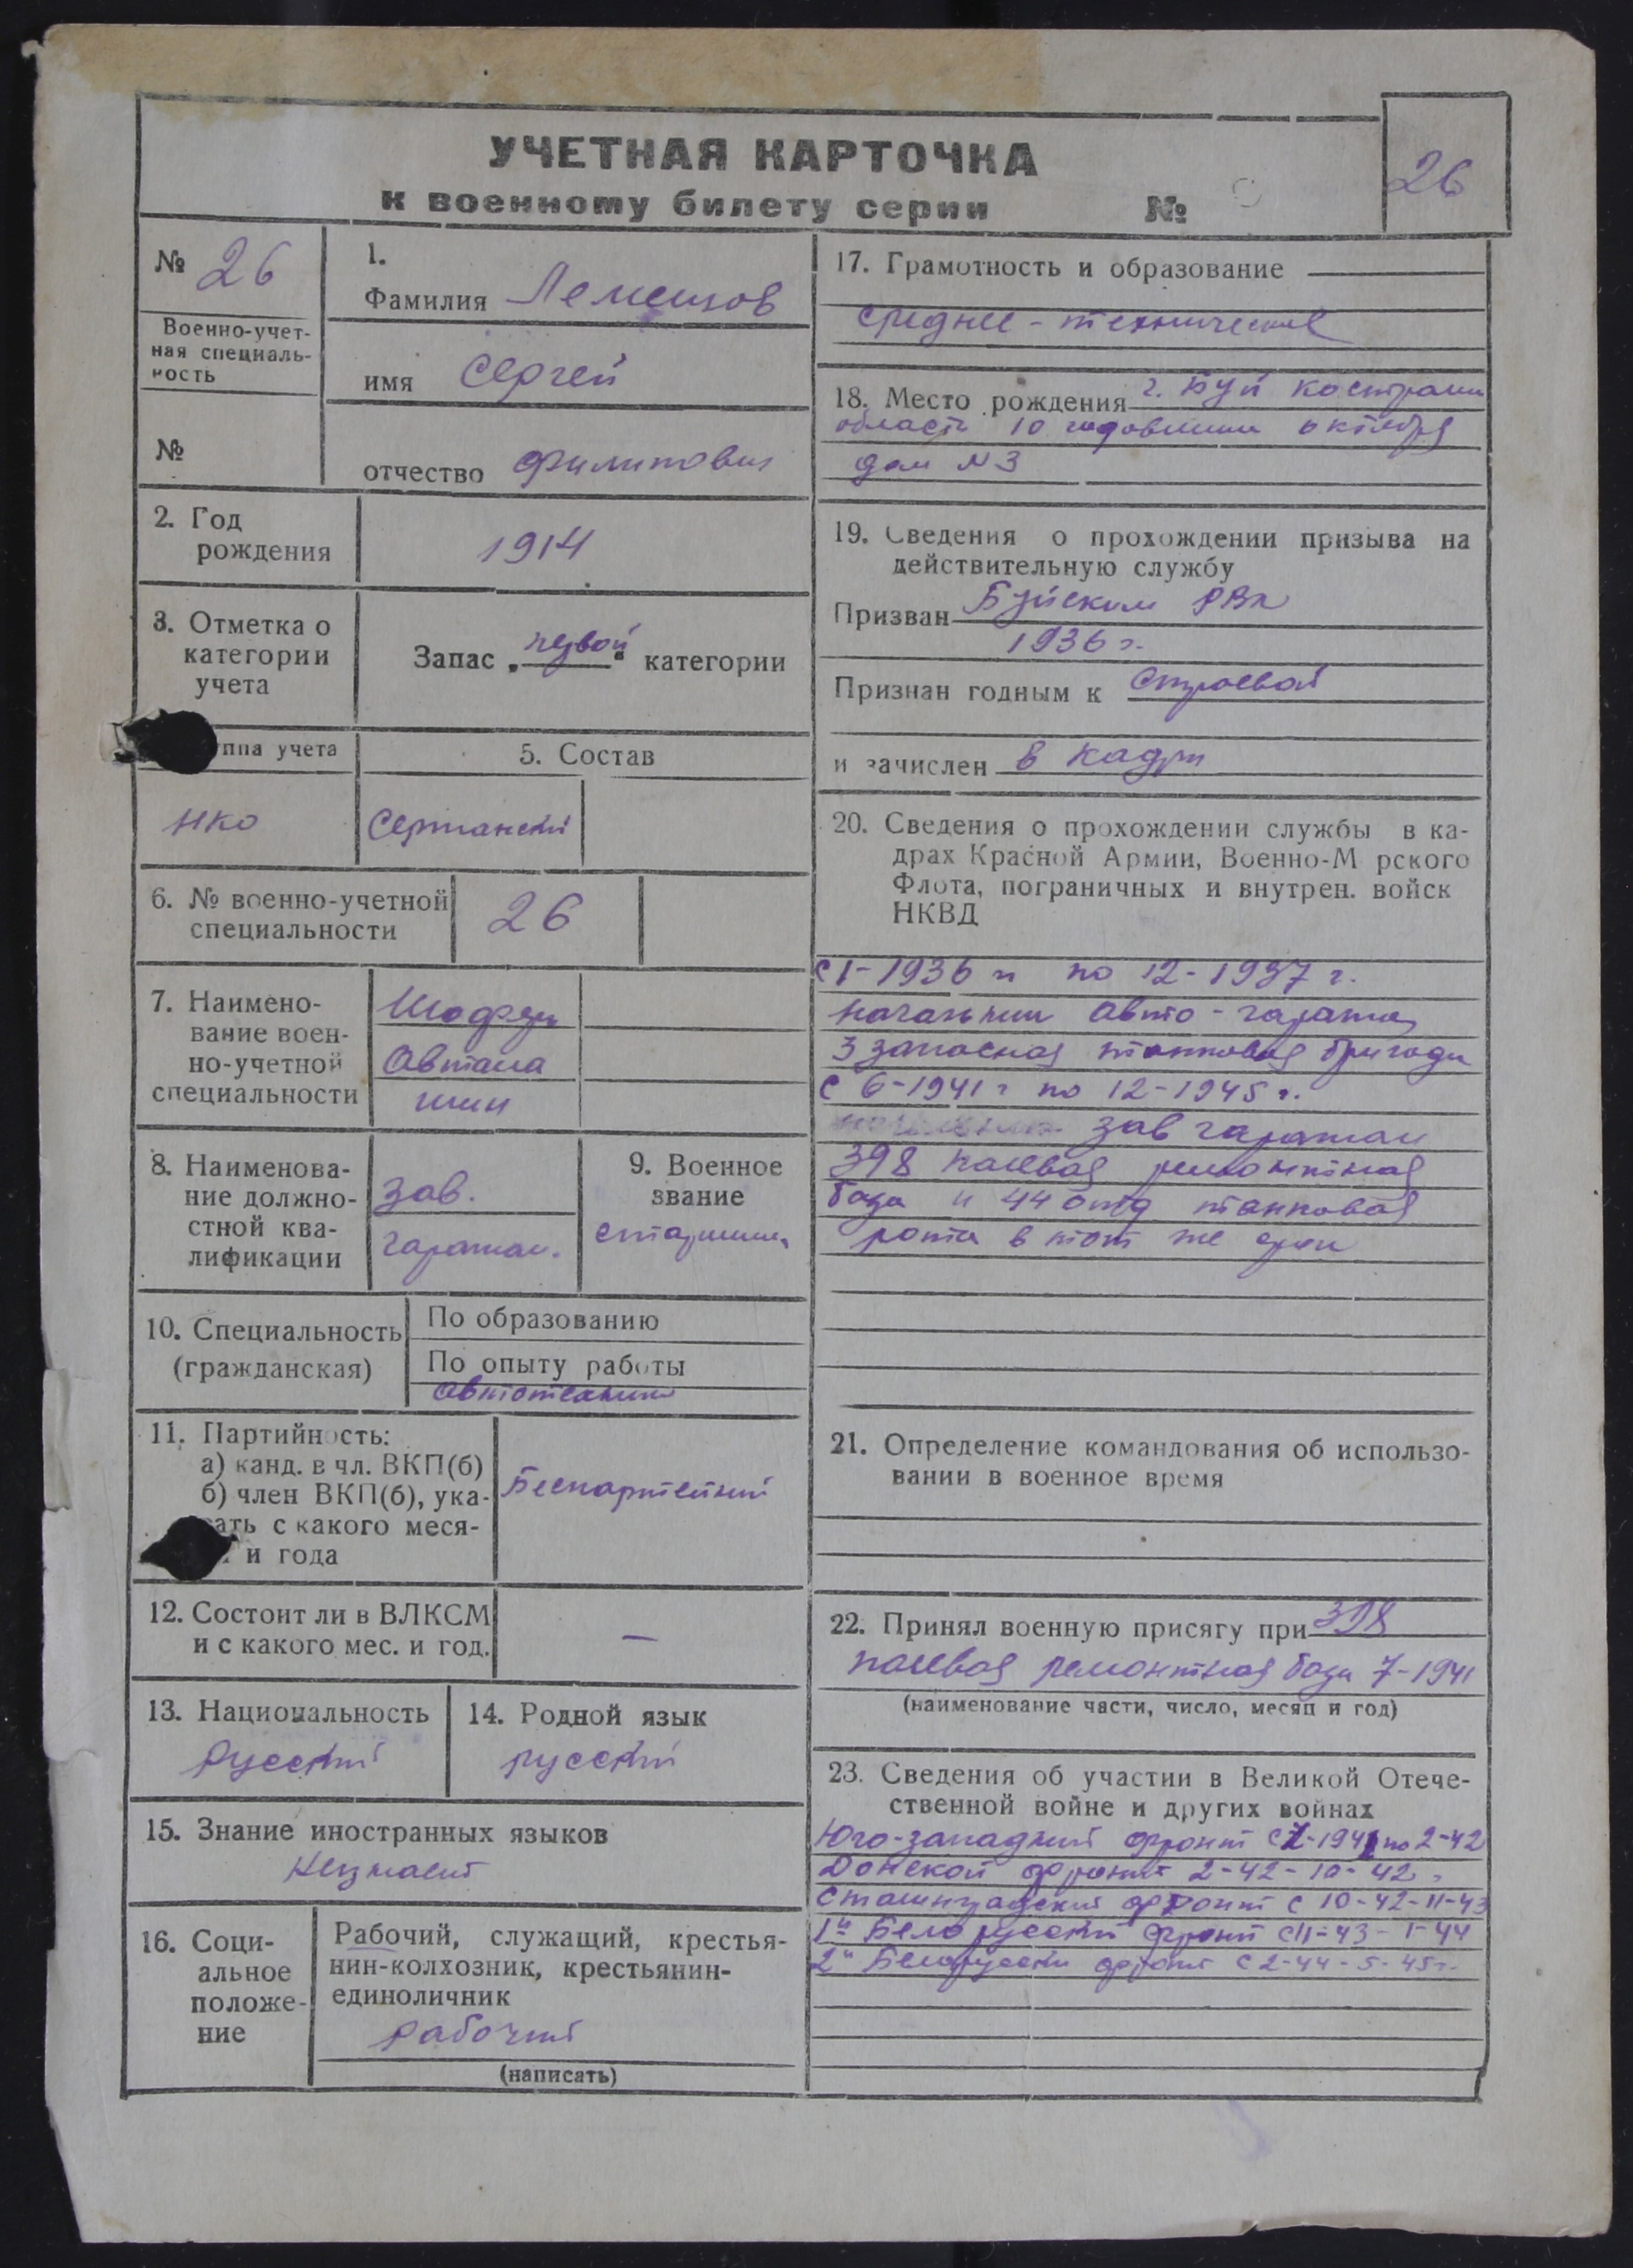 УЧЕТНАЯ КАРТОЧКА
к военному билету серии №
26
№ 26
Военно-учет-
ная специаль-
ность
№
1.
Фамилия Лемешков
имя Сергей
отчество Филипович
2. Год
рождения
1914
3. Отметка о
категории
учета
Запас „первой“ категории
ппа учета
5. Состав
НКО
Сержанский
6. № военно-учетной
специальности
26
7. Наимено-
вание воен-
но-учетной
специальности
Шофер
Автома
шин
8. Наименова-
ние должно-
стной ква-
лификации
Зав.
гаражом.
9. Военное
звание
старшина
10. Специальность
(гражданская)
По образованию
По опыту работы
автотехник
11. Партийность:
а) канд. в чл. ВКП(б)
б) член ВКП(б), ука-
зать с какого меся-
и года
Беспартейный
12. Состоит ли в ВЛКСМ
и с какого мес. и год.
—
13. Национальность
Русский
14. Родной язык
русский
15. Знание иностранных языков
Незнает
16. Соци-
альное
положе-
ние
Рабочий, служащий, крестья-
нин-колхозник, крестьянин-
единоличник
рабочий
(написать)
17. Грамотность и образование
среднее-техническое
18. Место рождения г. Буй костром
область 10 годовшини октября
дом N 3
19. Сведения о прохождении призыва на
действительную службу
Призван Буйским РВК
1936 г.
Признан годным к строевой
и зачислен в кадры
20. Сведения о прохождении службы в ка-
драх Красной Армии, Военно-М рского
Флота, пограничных и внутрен. войск
НКВД
с 1-1936 г по 12-1937 г.
начальник авто-гаража
3 запасная танковая бригада
с 6-1941 г по 12-1945 г.
зав гаражом
398 полевая ремонтная
база и 44 отд танковая
рота в тот же срок
21. Определение командования об использо-
вании в военное время
22. Принял военную присягу при 398
полевая ремонтная база 7-1941
(наименование части, число, месяц и год)
23. Сведения об участии в Великой Отече-
ственной войне и других войнах
Юго-западный фронт с 7-1941 по 2-42
Донской фронт 2-42-10-42 г
Сталинградский фронт с 10-42-11-43
1й Белорусский фронт с 11-43-1-44
2й Белорусский фронт с 2-44-5-45г.